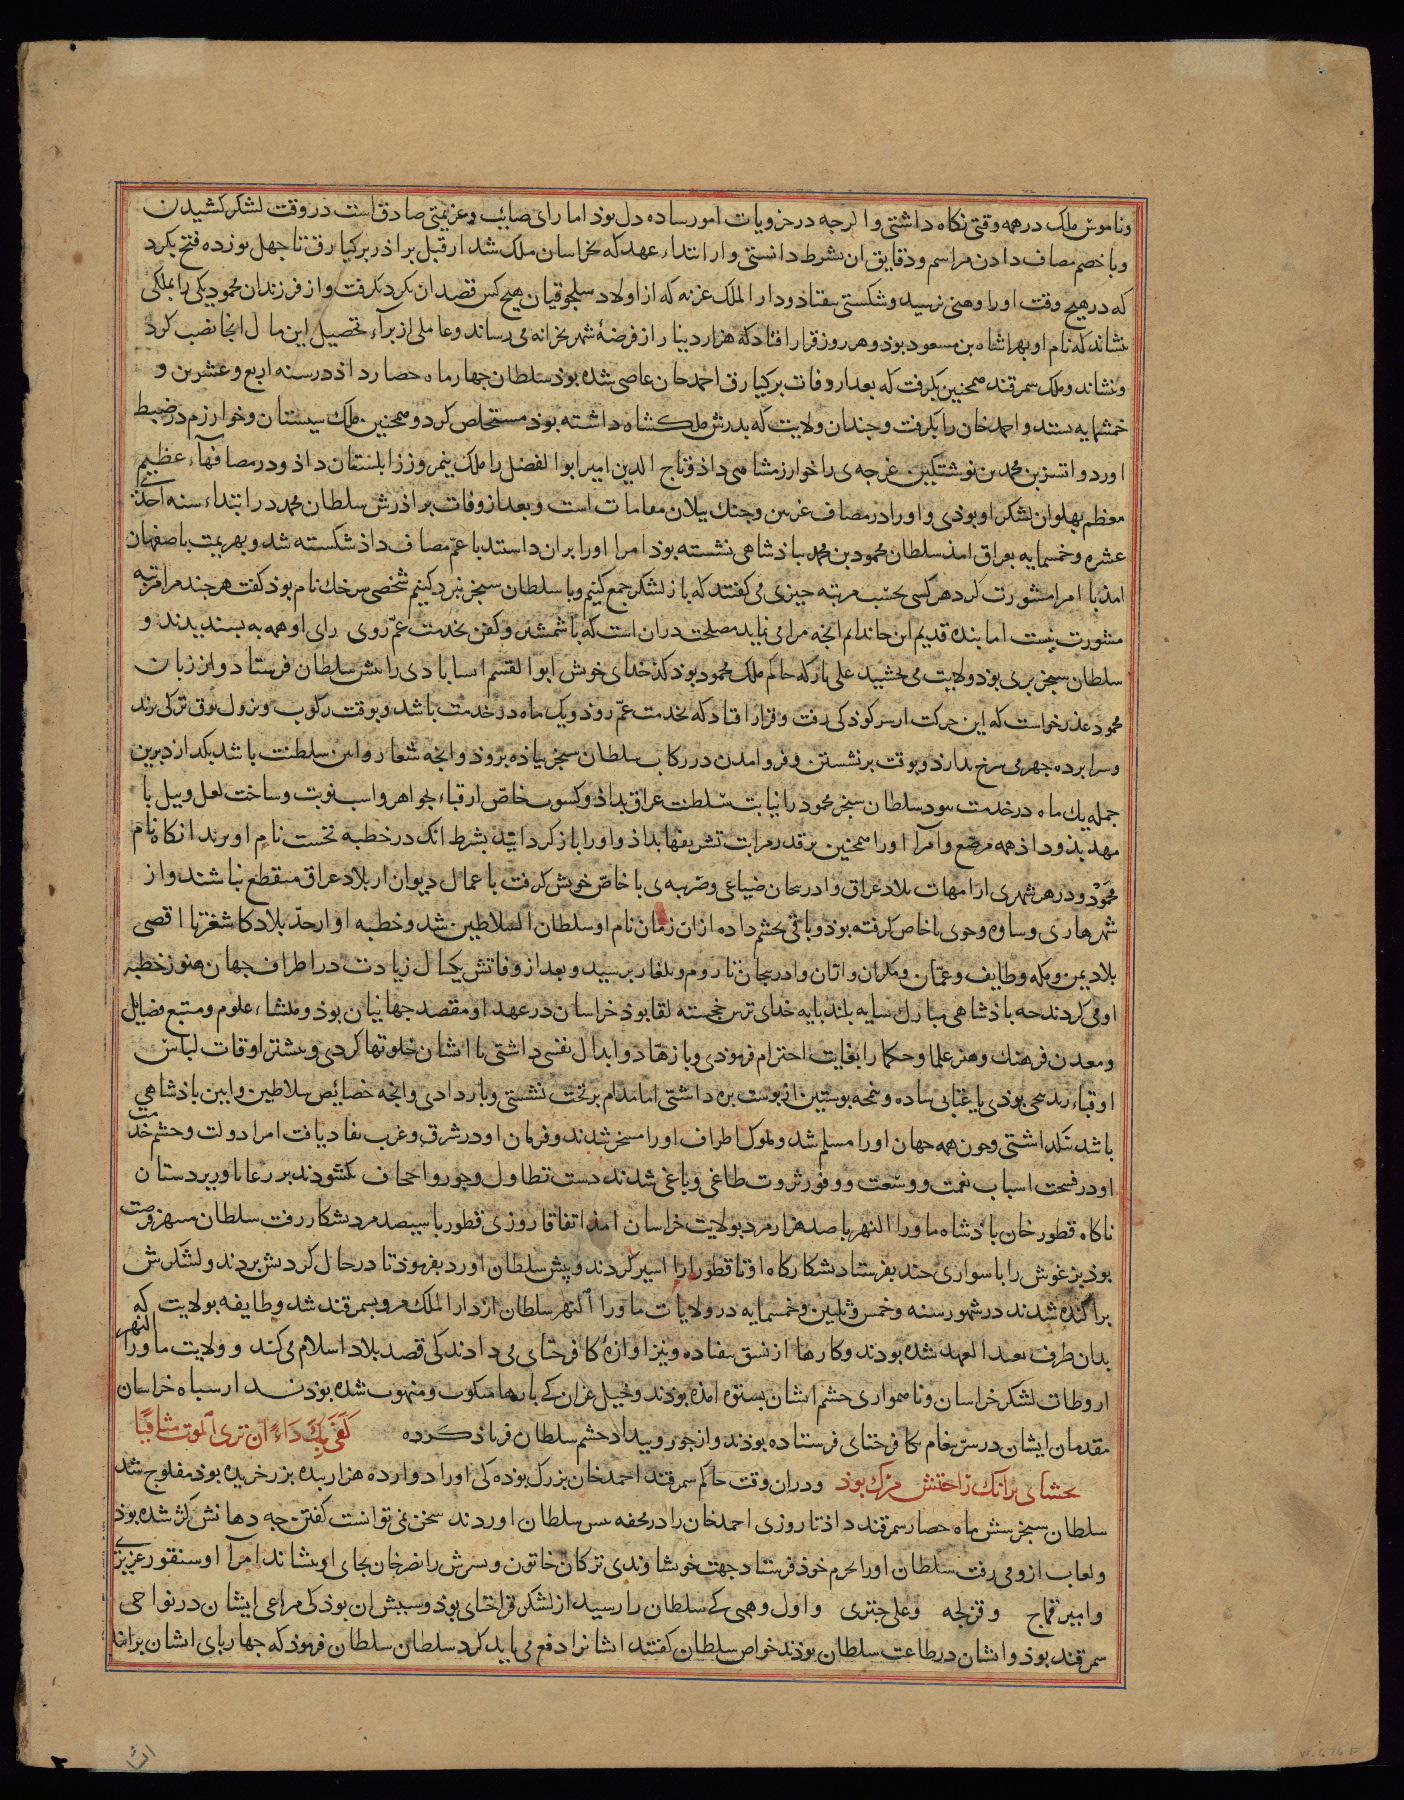 وناموس ملک در همه وقتی نکاه داشتی واکرجه در جزویات امور ساده دل بوذ اما رای صایب وعزیمتی صادق داشت در وقت لشکر کشیدن
وبا خصم مصاف دادن مراسم ودقایق ان بشرط دانستی واز ابتداء عهد که بخراسان ملک شد از قبل براذر برکیارق تا جهل نوزده فتح بکرد
که در هیچ وقت اورا وهنی نرسید وشکستی نیفتاد ودار الملک غزنه که از اولاد سلجوقیان هیچ کس قصد ان نکرد بکرفت واز فرزندان محمود یکی را بملکی
بنشاند که نام او بهرامشاه بن مسعود بوذ وهر روز قرار افتاد که هزار دینار از فرضهٔ شهر بخزانه می رساند وعاملی از براء تحصیل این مال انجا نصب کرد
وبنشاند وملک سمرقند همجنین بکرفت که بعد از وفات برکیارق احمد خان عاصی شده بوذ سلطان جهار ماه حصار داذ در سنه اربع وعشرین و
خمسمایه بستد واحمد خان را بکرفت وجندان ولایت که بدرش ملکشاه داشته بوذ مستخلص کرد وهمجنین ملک سیستان وخوارزم در ضبط
اورد واتسز بن محمد بن نوشتکین غرجه‌ی را خوارزمشاهی داذ وتاج الدین امیر ابو الفضل را ملک نیمروز زابلستان داذ ودر مصافهاء عظیم
معظم بهلوان لشکر او بوذی واورا در مصاف غزنین وجنک بیلان مقامات است وبعد از وفات براذرش سلطان محمد در ابتداء سنه احدی
عشره وخمسمایه بعراق امذ سلطان محمود بن محمد بباذشاهی نشسته بوذ امرا اورا بران داستند با عم مصاف داذ شکسته شد وبهزیمت باصفهان
امذ با امرا مشورت کرد هر کسی بحسب مرتبه جیزی می کفتند که باز لشکر جمع کنیم وبا سلطان سنجر نبرد کنیم شخصی سرخک نام بوذ کفت هر جند مرا مرتبه
مشورت نیست اما بنده قدیم این خاندانم انجه مرا می نماید مصلحت دران است که با شمشیر وکفن بخدمت عم روی رای او همه به بسندیدند و
سلطان سنجر بری بوذ وولایت می بخشید علی بار که حاکم ملک محمود بوذ کدخدای خوش ابوا لقسم انسابادی را بیش سلطان فرستاد واز زبان
محمود عذر خواست که این حرکت از سر کوذکی رفت وقرار افتاد که بخدمت عم روذ ویک ماه در خدمت باشد وبوقت رکوب ونزول بوق ترکی نزند
وسرا برده جهرمی سرخ ندارذ وبوقت برنشستن وفرو امدن در رکاب سلطان سنجر بیاذه بروذ وانجه شعار واین سلطنت باشد بکذارد برین
جمله یک ماه در خدمت ببود سلطان سنجر محمود را نیابت سلطنت عراق بداذ وکسوت خاص از قباء بجواهر واسب نوبت وساخت لعل وبیل با
مهد بذو داذ همه مرصع وامرآ اورا همجنین برقدر مراتب تشریفها بداذ واورا باز کردانید بشرط انک در خطبه نخست نام او برند انکاه نام
محمود ودر هر شهری از امهات بلاد عراق واذربیجان ضیاعی وضربه‌ی با خاص خویش کرفت با عمال دیوان از بلاد عراق منقطع نباشند واز
شهرها ری وساوه وخوی با خاص کرفته بوذ وباقی بحشم داده ازان زمان نام او سلطان السلاطین شد وخطبه او از حد بلاد کاشغر تا اقصی
بلاد یمن ومکه وطایف وعمان ومکران واران واذربیجان تا روم وبلغار برسید وبعد از وفاتش یکسال زیادت در اطراف جهان هنوز خطبه
او می کردند جه باذشاهی مبارک سایه بلند بایه خدای ترس خجسته لقا بوذ خراسان در عهد او مقصد جهانیان بوذ ومنشاء علوم ومنبع فضایل
ومعدن فرهنک وهنر علما وحکما را بغایت احترام فرموذی وبا زهاد وابدال نفسی داشتی با ایشان خلوتها کردی وبیشتر اوقات لباس
او قباء زندنجی بوذی یا عتابی ساده ونیمجه بوستین از بوست بره داشتی اما مدام بر تخت نشستی وبار دادی وانجه خصایص سلاطین وایین باذشاهی
باشد نکذاشتی وجون همه جهان اورا مسلم شد وملوک اطراف اورا مسخر شدند وفرمان او در شرق وغرب نفاذ یافت امرا دولت وحشم خدمت
او در فسحت اسباب نعمت ووسعت ووفور ثروت طاغی وباغی شدند دست تطاول وجور واجحاف بکشودند بر رعایا وزیردستان
ناکاه قطور خان باذشاه ماورا النهر با صد هزار مرد بولایت خراسان امذ اتفاقا روزی قطور با سیصد مرد بشکار رفت سلطان منتهز فرصت
بوذ بزغوش را با سواری جند بفرستاد بشکارکاه او تا قطور را اسیر کردند وپیش سلطان اورد بفرموذ تا در حال کردنش بزدند ولشکرش
براکنده شدند در شهور سنه وخمس وثلثین وخمسمایه در ولایات ماورا النهر سلطان از دار الملک مرو بسمرقند شد وطایفه بولایت که
بدان طرف بعد العهد شده بودند وکارها از نسق بیفتاده ونیز اوازهٔ کافر ختای می دادند کی قصد بلاد اسلام می کند وولایت ماورا النهر
از وطات لشکر خراسان وناهمواری حشم ایشان بستوه امذه بودند وخیل غزان کے بارها منکوب ومنهوب شده بودند از سباه خراسان
مقدمان ایشان در سر پیغام بکافر ختای فرستاده بوذند واز جور وبیداد حشم سلطان فریاذ کرده کَفَى بِکَ دَاءً ان ترى الموت شافیًا
بخشای برانک راحتش مرک بوذ ودران وقت حاکم سمرقند احمد خان بزرک بوذه کی اورا دوازده هزار بنده بزرخریده بوذ مفلوج شد
سلطان سنجر شش ماه حصار سمرقند داذ تا روزی احمد خان را در محفه بیش سلطان اوردند سخن نمی توانست کفتن جه دهانش کژ شده بوذ
ولعاب ازو می رفت سلطان اورا بحرم خوذ فرستاد جهت خویشاوندی ترکان خاتون وپسرش را نصر خان بجای او بنشاند امرآ او سنقور عزیزی
وامیر قماج وقزلجه وعلی جتری واول وهنی کے سلطان را رسید از لشکر قراختای بوذ وسببش ان بوذ کی مراعی ایشان در نواحی
سمرقند بوذ وایشان در طاعت سلطان بوذند خواص سلطان کفتند ایشانرا دفع می باید کرد سلطان سلطان فرموذ که جهاربای ایشان برانند
W.676F